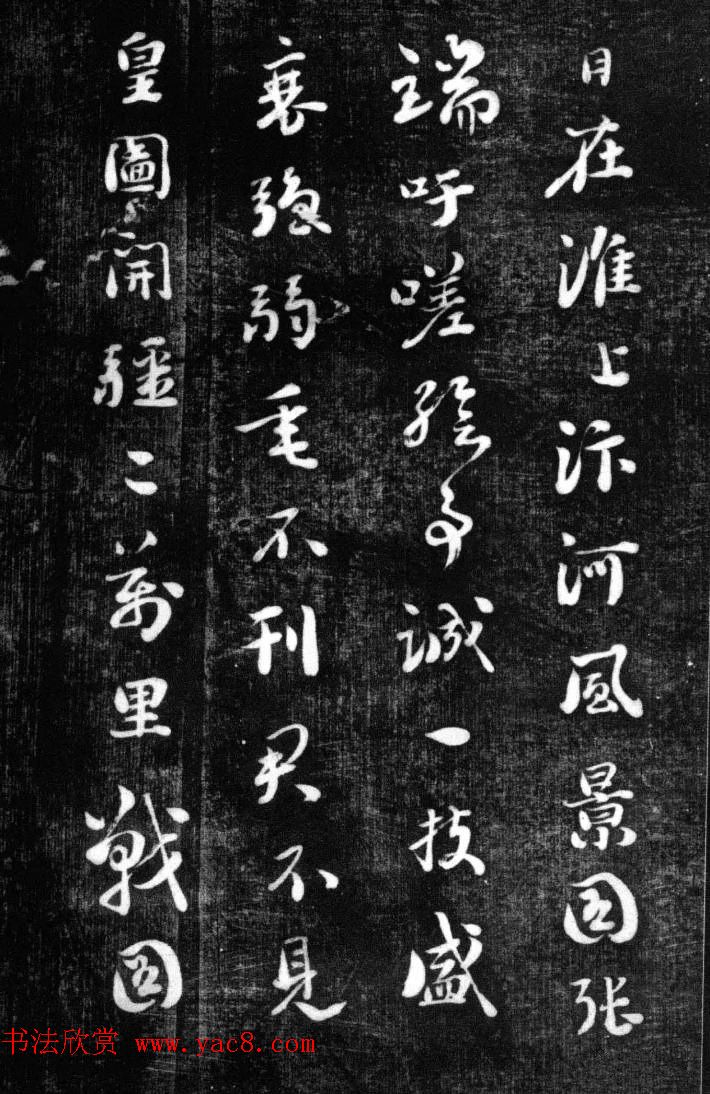 日在淮上汴河風景図张
端吁嗟絵事誠一技盛
衰強弱毛不刊君不見
皇圖開疆二萬里戦図
书法欣赏 www.yac8.com